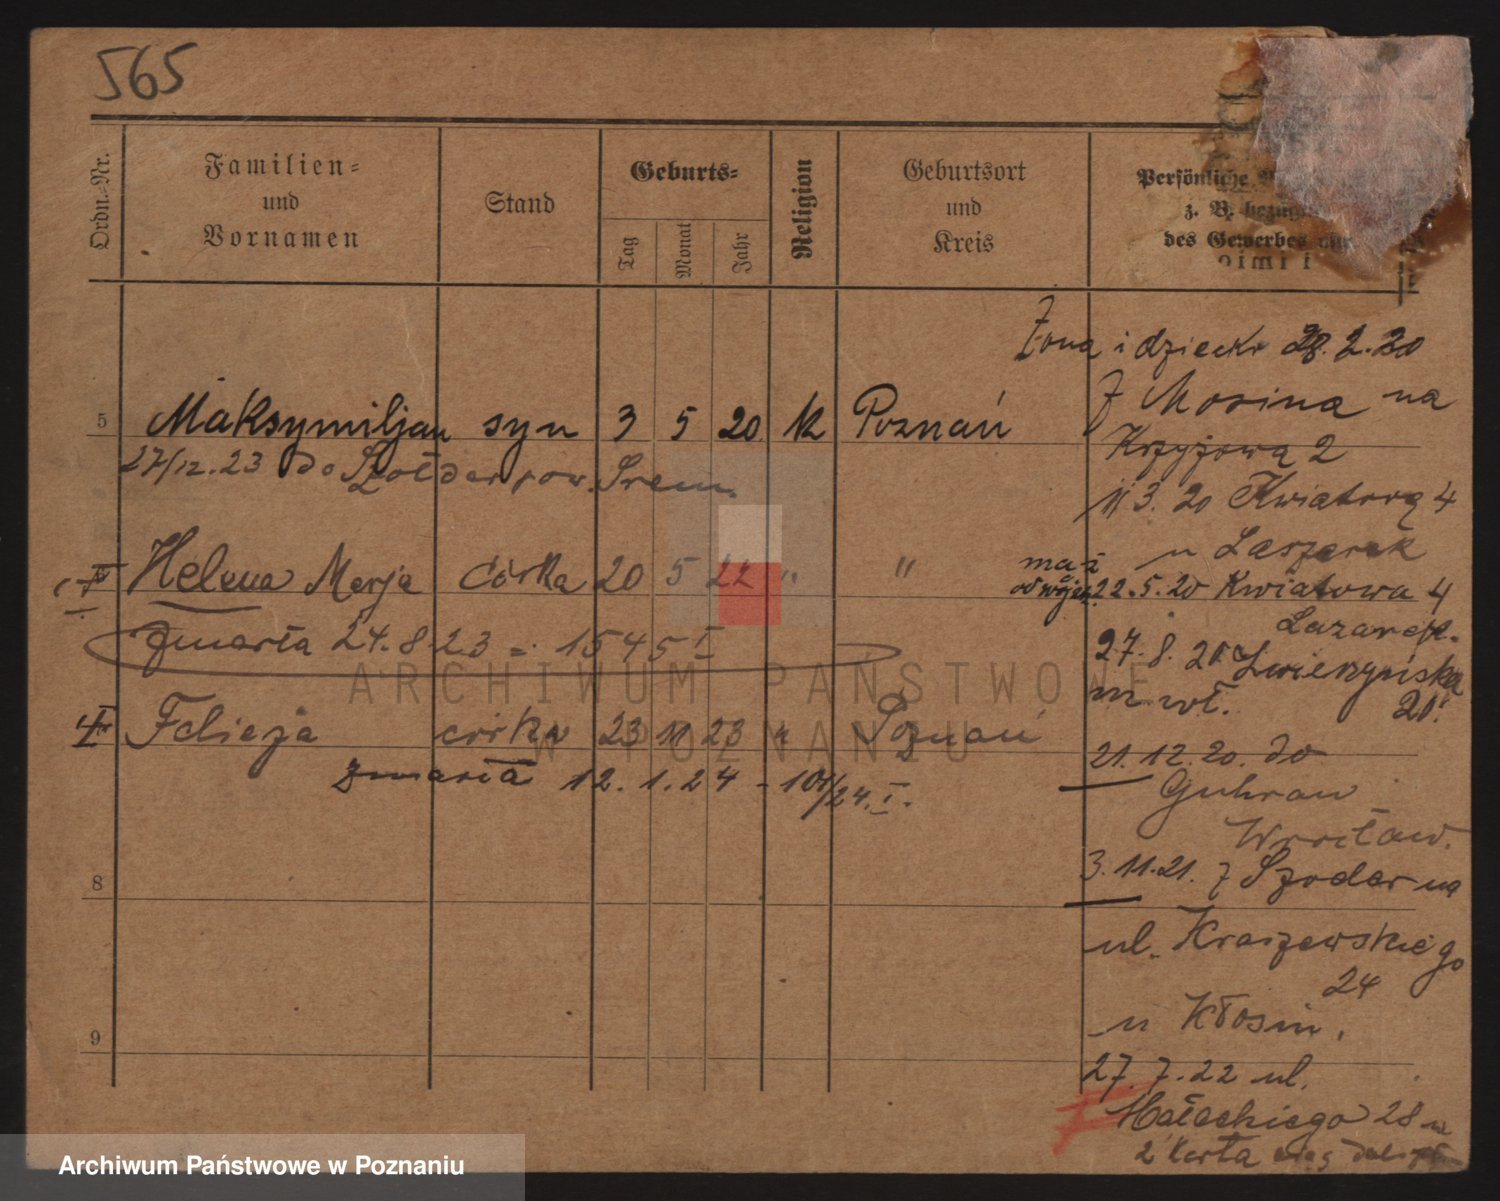 565
Ordn.-Nr.
Familien-
und
Vornamen
Stand
Geburts-
Tag
Monat
Jahr
Religion
Geburtsort
und
Kreis
Persönliche
z. B. bezügl
des Gewerbes
Żona i dziecko 28.2.20
z Mosina na
5 Maksymiljan syn 3 5 20 k Poznań
Krzyżową 2
27/12.23 do Szołder pow. Śrem
11 3. 20 Kwiatową 4
u Laszarek
Helena Marja córka 20 5 22 " "
mąż
od wojsk. 22.5.20 Kwiatowa 4
Lazarek.
zmarła 24.8.23 = 1545 I
27.8.20 Zwierzyniska
20.
m. wł.
Felicja córka 23 11 23 k Poznań
21.12.20. do
zmarła 12.1.24 - 101/24.I.
Guhrau
Wrocław.
3.11.21. z Szoder na
8
ul. Kraszewskiego
24
u Kłosin.
9
27.7.22 ul.
Małeckiego 28
2 karta ciąg
ARCHIWUM PAŃSTWOWE
W POZNANIU
Archiwum Państwowe w Poznaniu